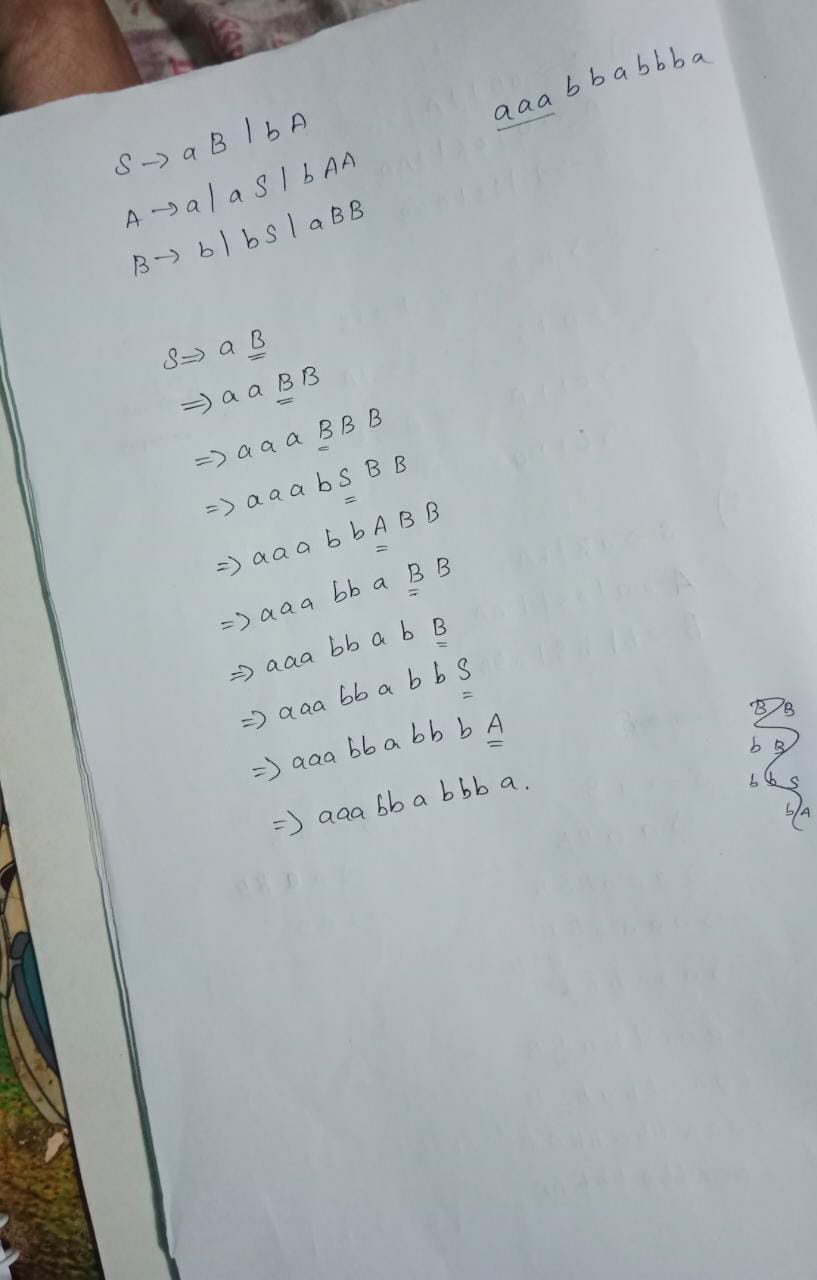 S → aB | bA
aaabbabbba
A → a | aS | bAA
B → b | bS | aBB
S ⇒ aB
⇒ aaBB
⇒ aaaBBB
⇒ aaabSBB
⇒ aaabbABB
⇒ aaabbaBB
⇒ aaabbabB
⇒ aaabbabbS
⇒ aaabbabbbA
⇒ aaabbabbba.
BB
bB
bbS
bA